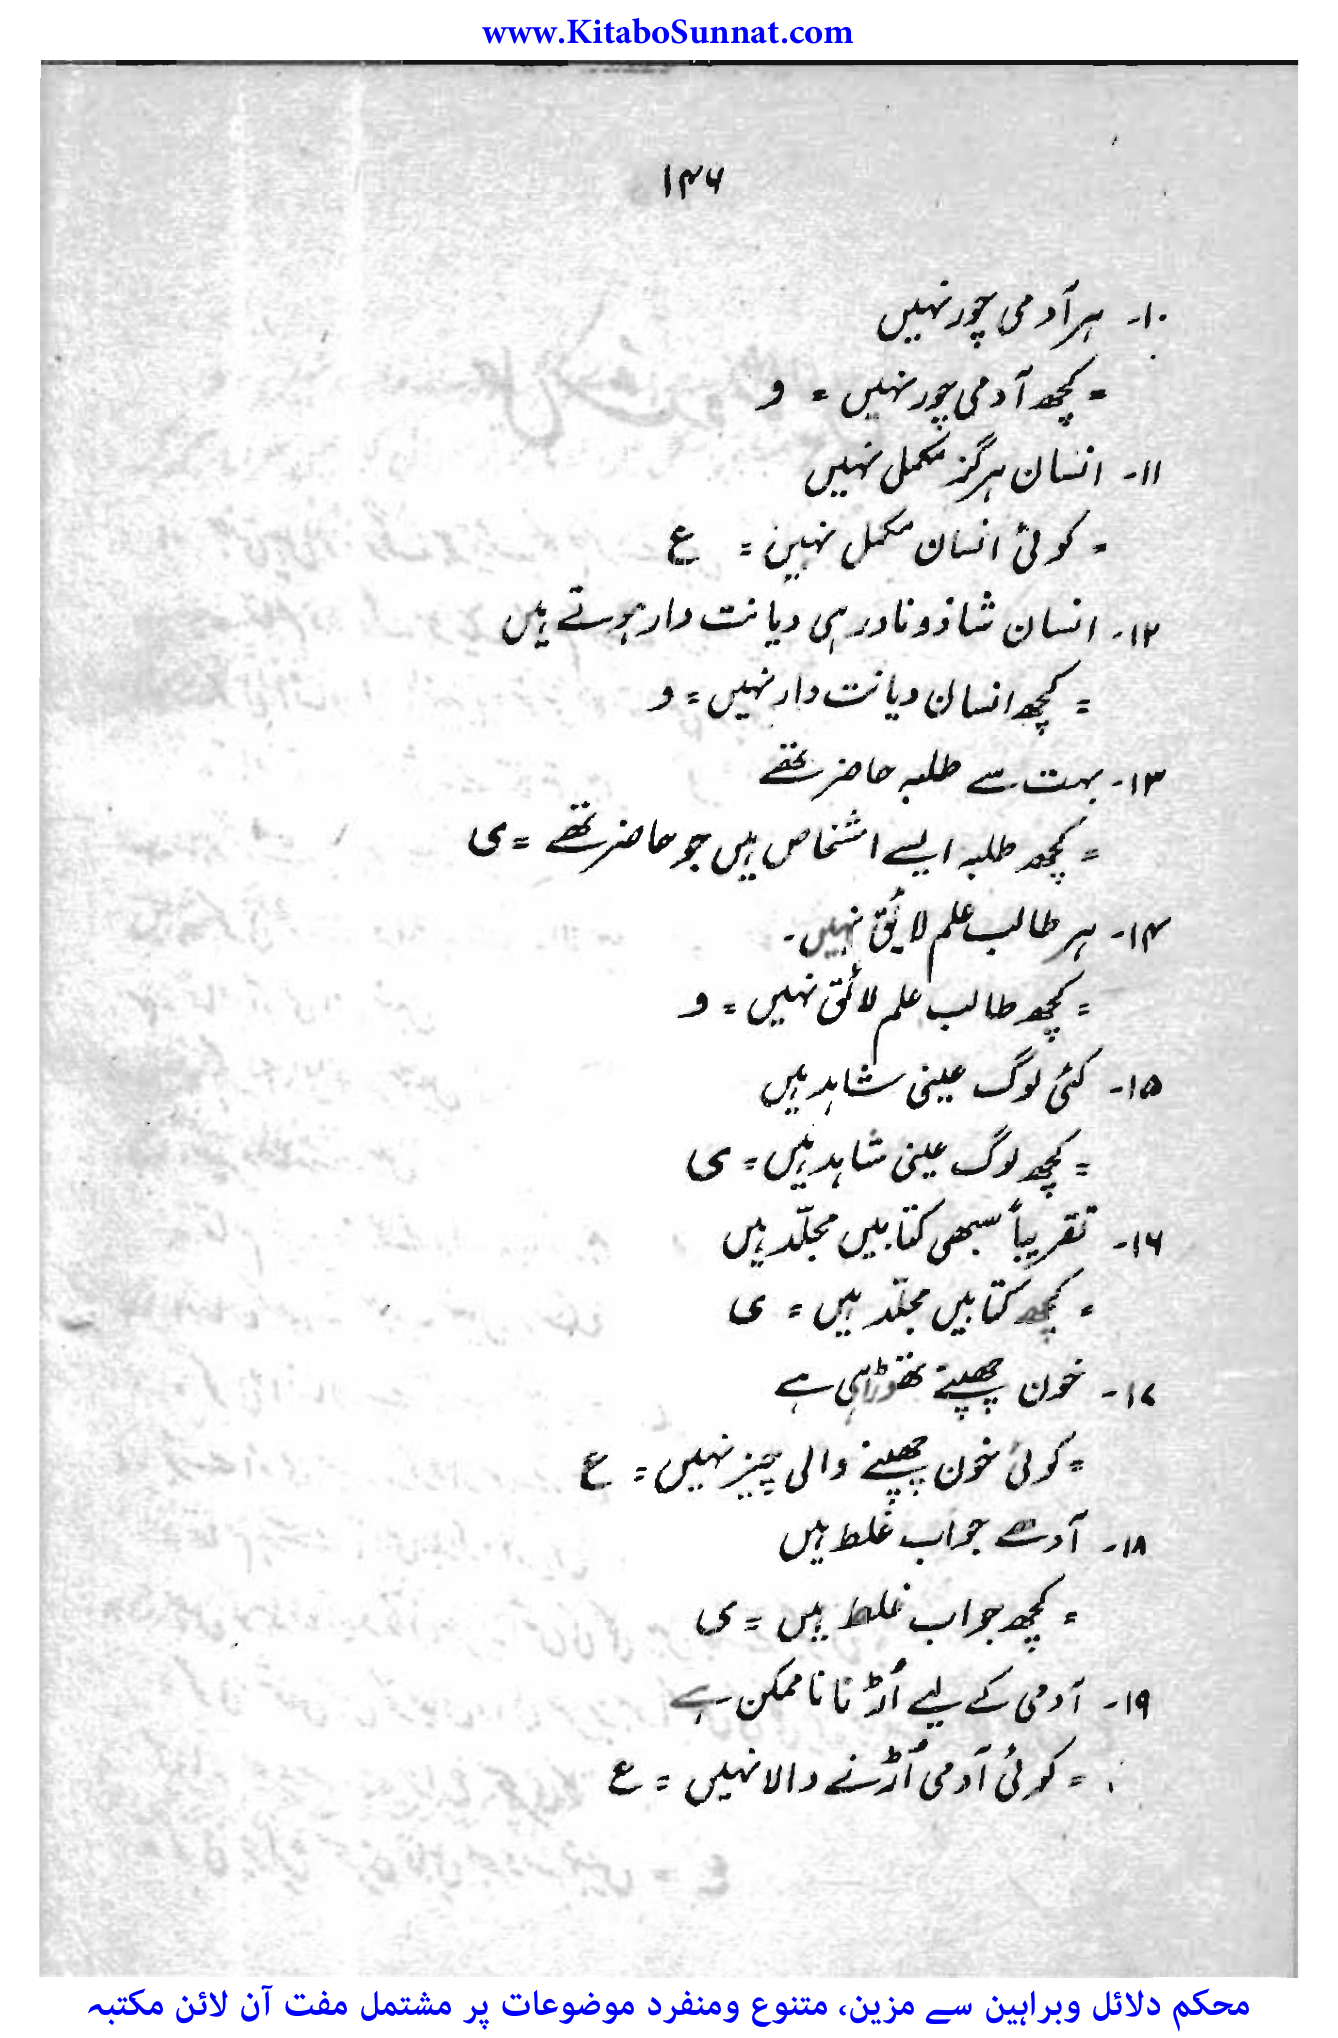 www.KitaboSunnat.com
۱۴۶
۱۰- ہر آدمی چور نہیں
= کچھ آدمی چور نہیں = و
۱۱- انسان ہرگز مکمل نہیں
= کوئی انسان مکمل نہیں = ع
۱۲- انسان شاذ و نادر ہی دیانت دار ہوتے ہیں
= کچھ انسان دیانت دار نہیں = و
۱۳- بہت سے طلبہ حاضر تھے
= کچھ طلبہ ایسے اشخاص ہیں جو حاضر تھے = ی
۱۴- ہر طالب علم لائق نہیں۔
= کچھ طالب علم لائق نہیں = و
۱۵- کئی لوگ عینی شاہد ہیں
= کچھ لوگ عینی شاہد ہیں = ی
۱۶- تقریباً سبھی کتابیں مجلّد ہیں
= کچھ کتابیں مجلّد ہیں = ی
۱۷- خون چھپتے تھوڑا ہی ہے
= کوئی خون چھپنے والی چیز نہیں = ع
۱۸- آدھے جواب غلط ہیں
= کچھ جواب غلط ہیں = ی
۱۹- آدمی کے لیے اُڑنا ناممکن ہے
= کوئی آدمی اُڑنے والا نہیں = ع
محکم دلائل وبراہین سے مزین، متنوع ومنفرد موضوعات پر مشتمل مفت آن لائن مکتبہ